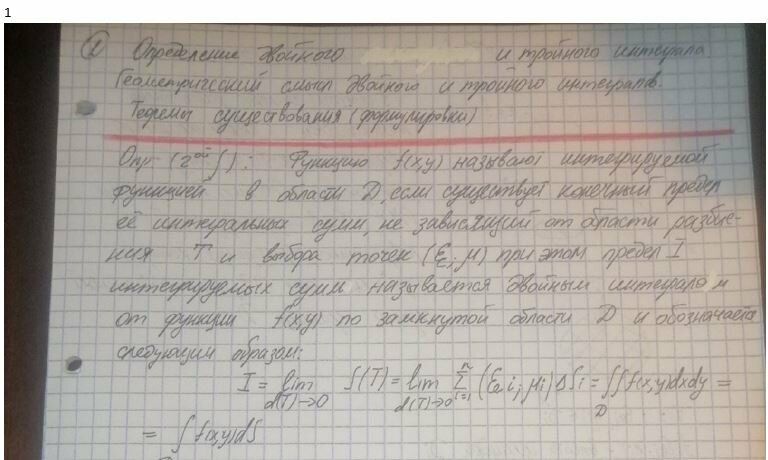 1
① Определение двойного и тройного интеграла
Геометрический смысл двойного и тройного интегралв.
Теоремы существования (формулировки)
Опр (2ой ∫): Функцию f(x,y) называют интегрируемой
функцией в области D, если существует конечный предел
её интегральных сумм, не зависящий от области разбие-
ния T и выбора точек (ξ; μ) при этом предел I
интегрируемых сумм называется двойным интегралом
от функции f(x,y) по замкнутой области D и обозначается
следующим образом:
I = lim S(T) = lim Σ (ξi; μi) ΔSi = ∬ f(x,y)dxdy =
d(T)→0 d(T)→0 i=1 n D
= ∫ f(x,y)dS